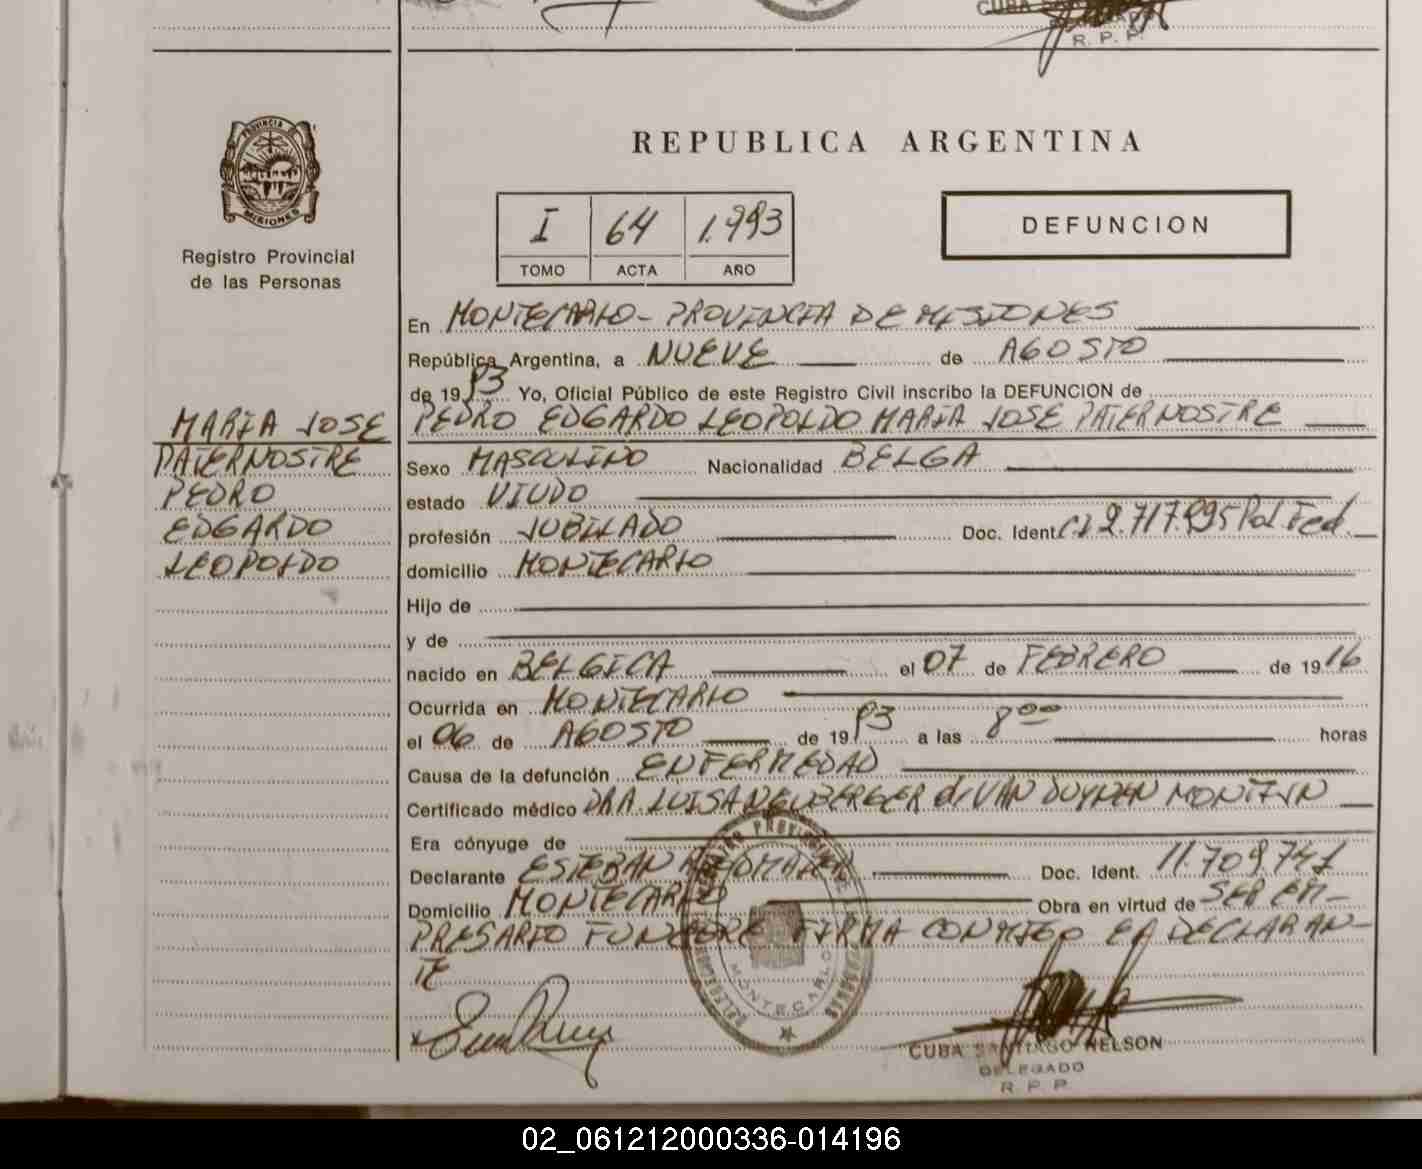 CUBA
R. P. P.
PROVINCIA DE
MISIONES
Registro Provincial
de las Personas
REPUBLICA ARGENTINA
I 64 1.993
TOMO ACTA AÑO
DEFUNCION
En MONTECARLO - PROVINCIA DE MISIONES
República Argentina, a NUEVE de AGOSTO
de 19 93 Yo, Oficial Público de este Registro Civil inscribo la DEFUNCION de
PEDRO EDGARDO LEOPOLDO MARIA JOSE PATERNOSTRE
MARIA JOSE
PATERNOSTRE
PEDRO
EDGARDO
LEOPOLDO
Sexo MASCULINO Nacionalidad BELGA
estado VIUDO
profesión JUBILADO Doc. Ident. CI 9.717.995 Pol Fed.
domicilio MONTECARLO
Hijo de
y de
nacido en BELGICA el 07 de FEBRERO de 1916
Ocurrida en MONTECARLO
el 06 de AGOSTO de 19 93 a las 8 00 horas
Causa de la defunción ENFERMEDAD
Certificado médico DRA. LUISA NEUBERGER d/ VAN DUYNEN MONTZUN
Era cónyuge de
Declarante ESTEBAN Doc. Ident. 11.709.741
Domicilio MONTECARLO Obra en virtud de SER EM-
PRESARIO FUNEBRE FIRMA CONMIGO EL DECLARAN-
TE
MONTECARLO
CUBA SANTIAGO NELSON
DELEGADO
R. P. P.
02_061212000336-014196